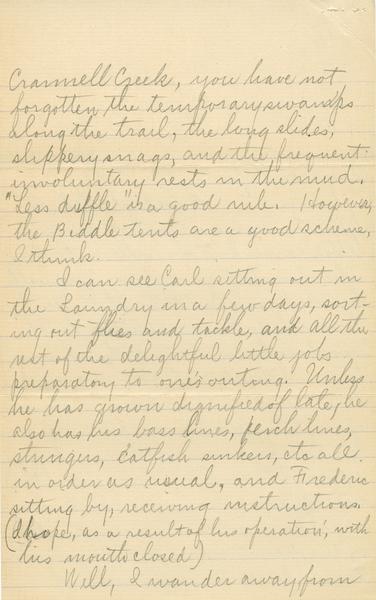 Cranmell Creek, you have not
forgotten, the temporary swamps
along the trail, the long slides,
slippery snags, and the frequent
involuntary rests in the mud.
"Less duffle" is a good rule. However,
the Biddle tents are a good scheme,
I think.
I can see Carl sitting out in
the Laundry in a few days, sort-
ing out flies and tackle, and all the
rest of the delightful little jobs
preparatory to one's outing. Unless
he has grown dignified of late, he
also has his bass lines, perch lines,
stringers, catfish sinkers, etc all
in order as usual, and Frederic
sitting by, receiving instructions.
(I hope, as a result of his operation, with
his mouth closed)
Well, I wander away from